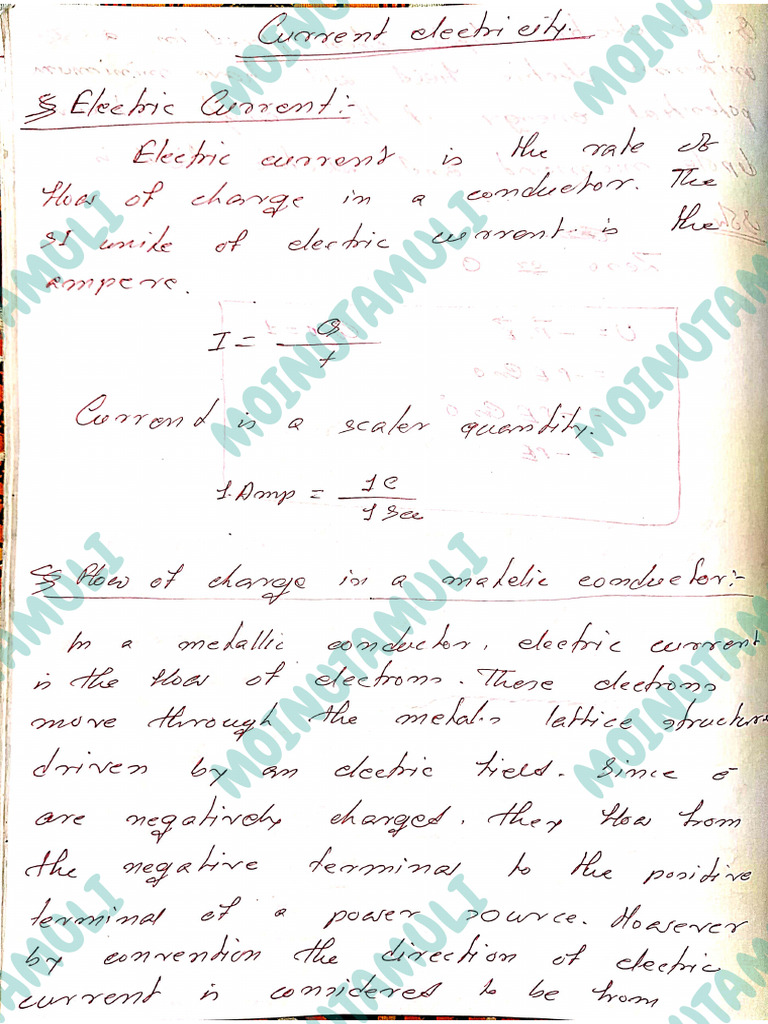 Current electricity.
§ Electric Current:-
Electric current is the rate of
flow of charge in a conductor. The
SI unit of electric current is the
ampere.
I = Q / t
Current is a scaler quantity.
1 Amp = 1C / 1 Sec
§ Flow of charge in a matelic conductor:-
In a metallic conductor, electric current
is the flow of electrons. These electrons
move through the metals lattice structure
driven by an electric field. Since e̅
are negatively charged, they flow from
the negative terminal to the positive
terminal of a power source. However
by convention the direction of electric
current is considered to be from
MOINUTAMULI
MOINUTAMULI
MOINUTAMULI
MOINUTAMULI
MOINUTAMULI
MOINUTAMULI
MOINUTAMULI
MOINUTAMULI
MOINUTAMULI